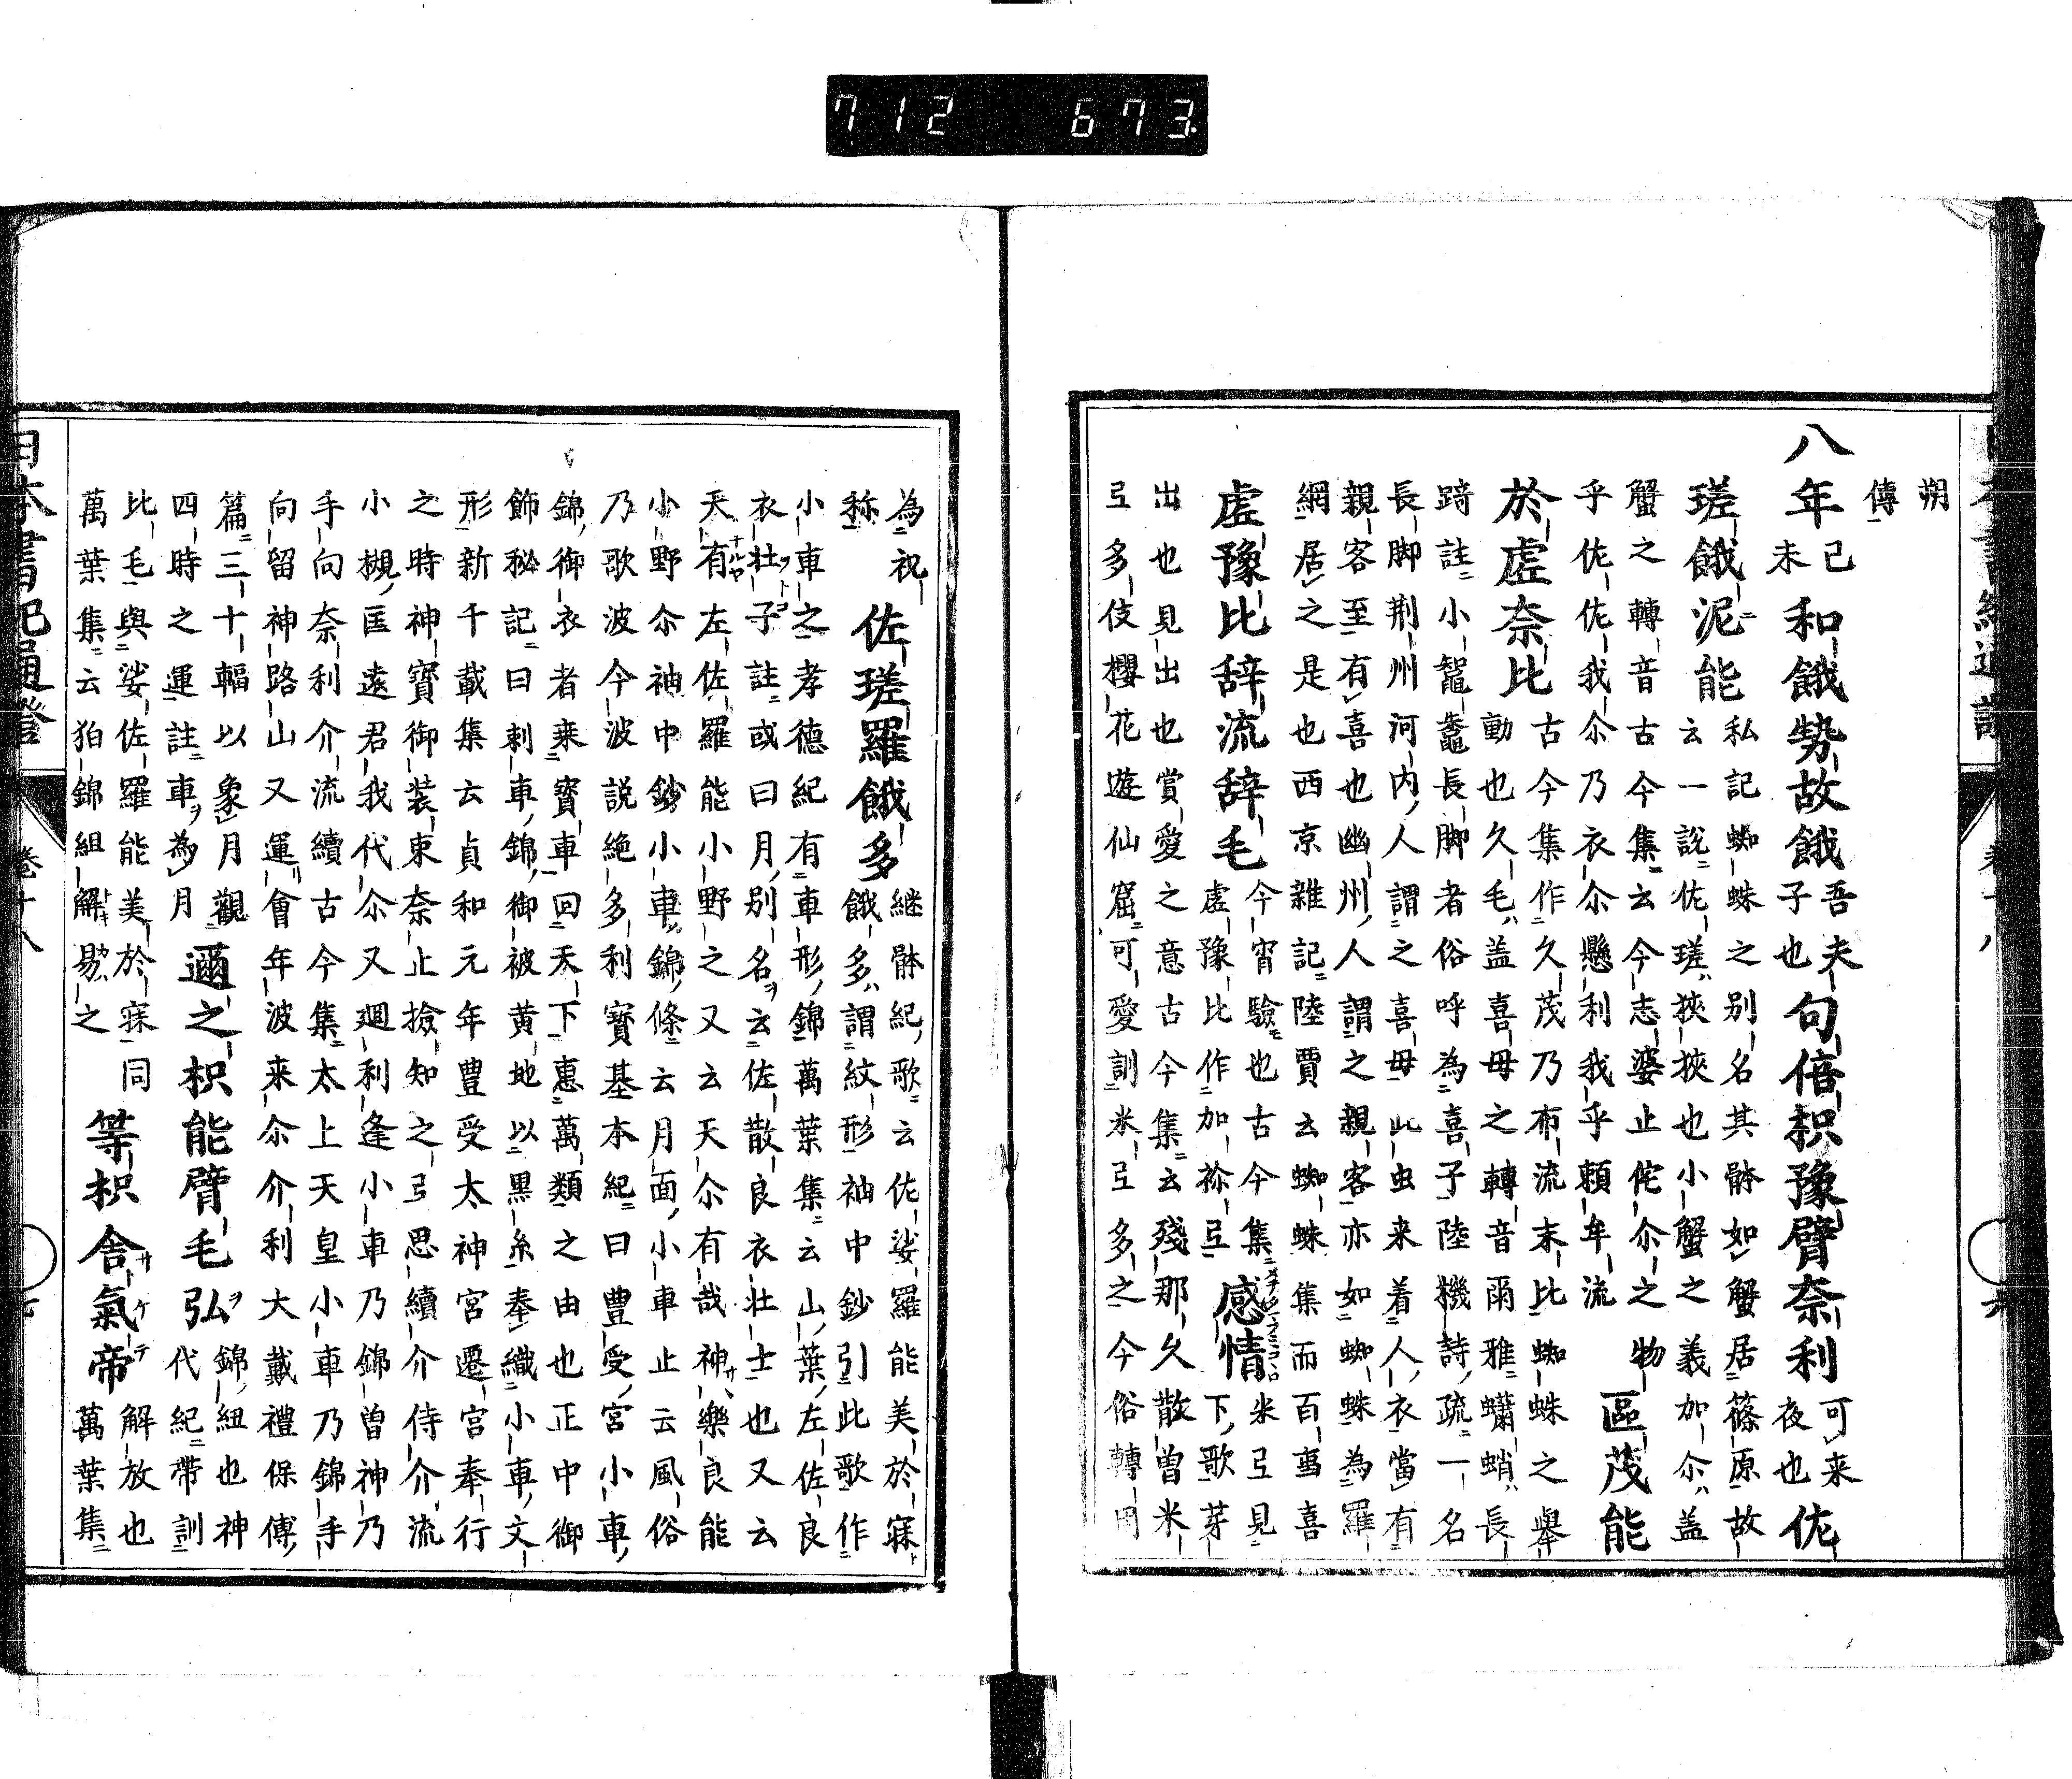 712 673
朔
傳
八年己未和餓勢故餓吾夫子也句倍枳豫臂奈利可来夜也佐
瑳餓泥能私記蜘蛛之別名其骵如蟹居篠原故
云一説佐瑳狹狹也小蟹之義加尒盖
蟹之轉音古今集云今志婆止侘尒之物
乎佐佐我尒乃衣尒懸利我乎頼牟流
區茂能
於虛奈比古今集作久茂乃布流末比蜘蛛之舉
動也久毛盖喜母之轉音爾雅蠨蛸長
踦註小鼅鼄長脚者俗呼為喜子陸機詩疏一名
長脚荆州河内人謂之喜母此虫来着人衣當有
親客至有喜也幽州人謂之親客亦如蜘蛛為羅
網居之是也西京雜記陸賈云蜘蛛集而百事喜
虛豫比辭流辭毛今宵驗也古今集
虛豫比作加祢弖
感情米弖見
下歌芽
出也見出也賞愛之意古今集云殘那久散曽米
弖多伎櫻花遊仙窟可愛訓米弖多之今俗轉用
為祝
称
佐瑳羅餓多継骵紀歌云佐娑羅能美於寐
餓多謂紋形袖中鈔引此歌作
小車之孝德紀有車形錦萬葉集云山葉左佐良
衣壮子註或曰月別名云佐散良衣壮士也又云
天有左佐羅能小野之又云天尒有哉神樂良能
小野尒袖中鈔小車錦條云月面小車止云風俗
乃歌波今波説絶多利寶基本紀曰豊受宮小車
錦御衣者乗寳車回天下惠萬類之由也正中御
餝秘記曰剌車錦御被黄地以黒糸奉織小車文
形新千載集云貞和元年豊受太神宮遷宮奉行
之時神寳御装束奈止撿知之弖思續介侍介流
小槻匡遠君我代尒又廻利逢小車乃錦曽神乃
手向奈利介流續古今集太上天皇小車乃錦手
向留神路山又運會年波来尒介利大戴禮保傅
篇三十輻以象月觀
四時之運註車為月
邇之枳能臂毛弘錦紐也神
代紀帶訓
比毛與娑佐羅能美於寐同
萬葉集云狛錦組解易之
等枳舍氣帝解放也
萬葉集
日本書紀通證
卷十八